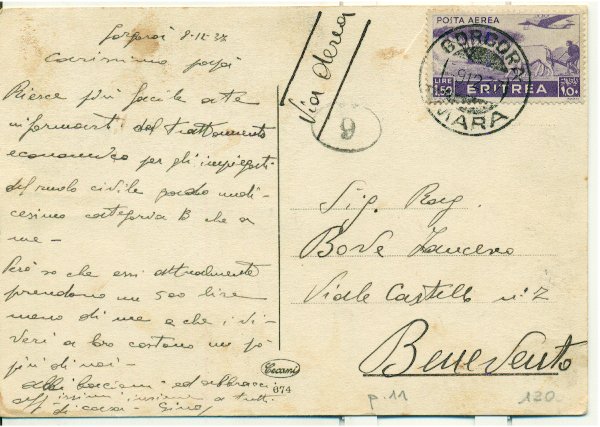 Gorgorà 8-12-38
carissimo papà
Riesce più facile a te
informarti del trattamento
economico per gli impiegati
del ruolo civile grado undi-
cesimo categoria B che a
me -
Però so che essi attualmente
prendono un 500 lire
meno di me e che i vi-
veri a loro costano un pò
più di noi -
abbi bacioni ed abbracci
aff issimi insieme a tutti
di casa - Gino
Via Aerea
9
POSTA AEREA
LIRE 1.50
ERITREA
10
GORGORA
Sig. Rag.
Bove
Viale Castello n. 2
Benevento
Cecami
674
p. 11
120.